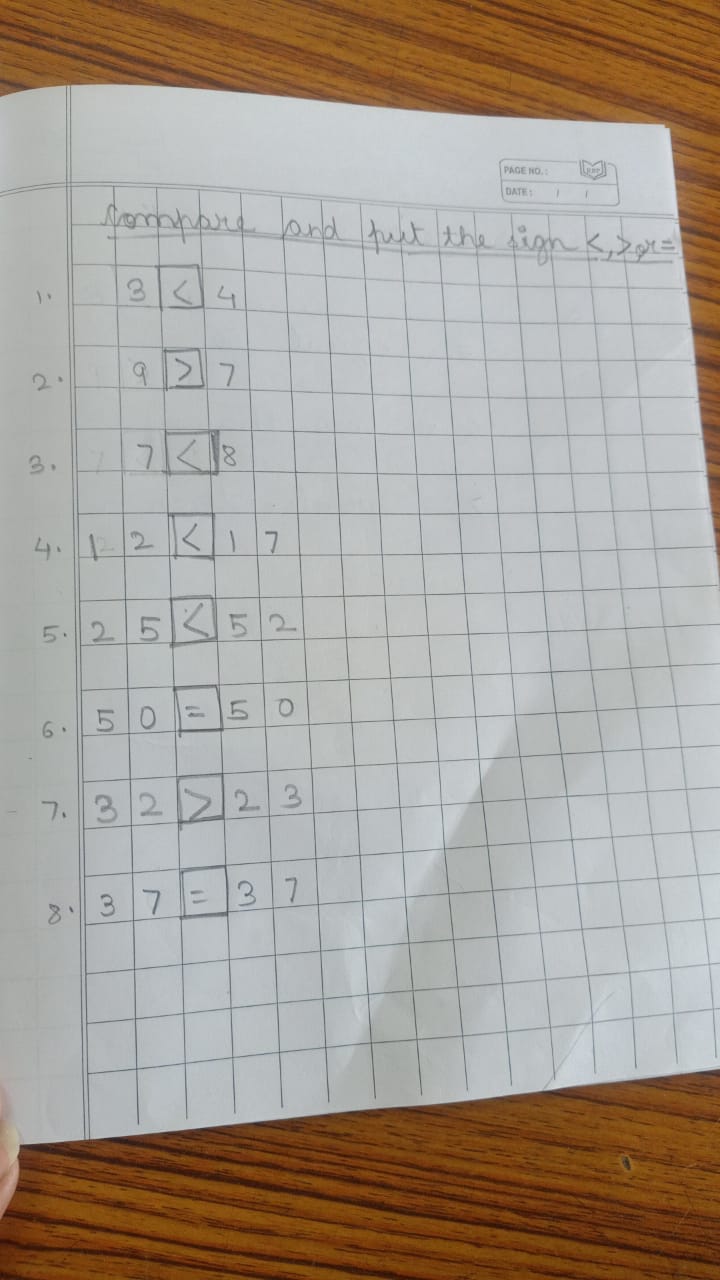 PAGE NO.:
DATE: / /
Compare and put the sign <, > or =
1. 3 < 4
2. 9 > 7
3. 7 < 8
4. 12 < 17
5. 25 < 52
6. 50 = 50
7. 32 > 23
8. 37 = 37